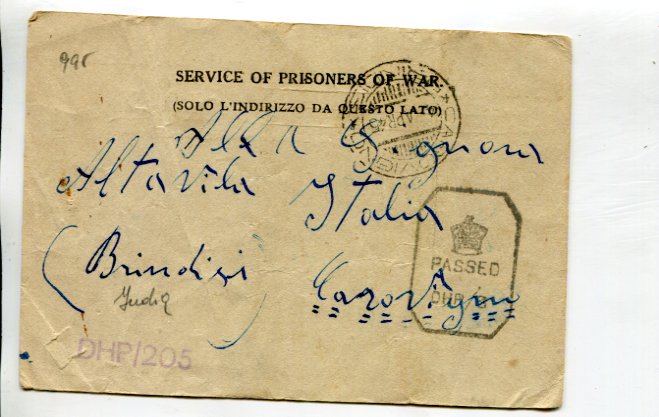 995
SERVICE OF PRISONERS OF WAR.
(SOLO L'INDIRIZZO DA QUESTO LATO)
APR 45
Alla Signora
Altavila Italia
(Brindisi)
Carovigno
India
PASSED
DHP/
DHP/205